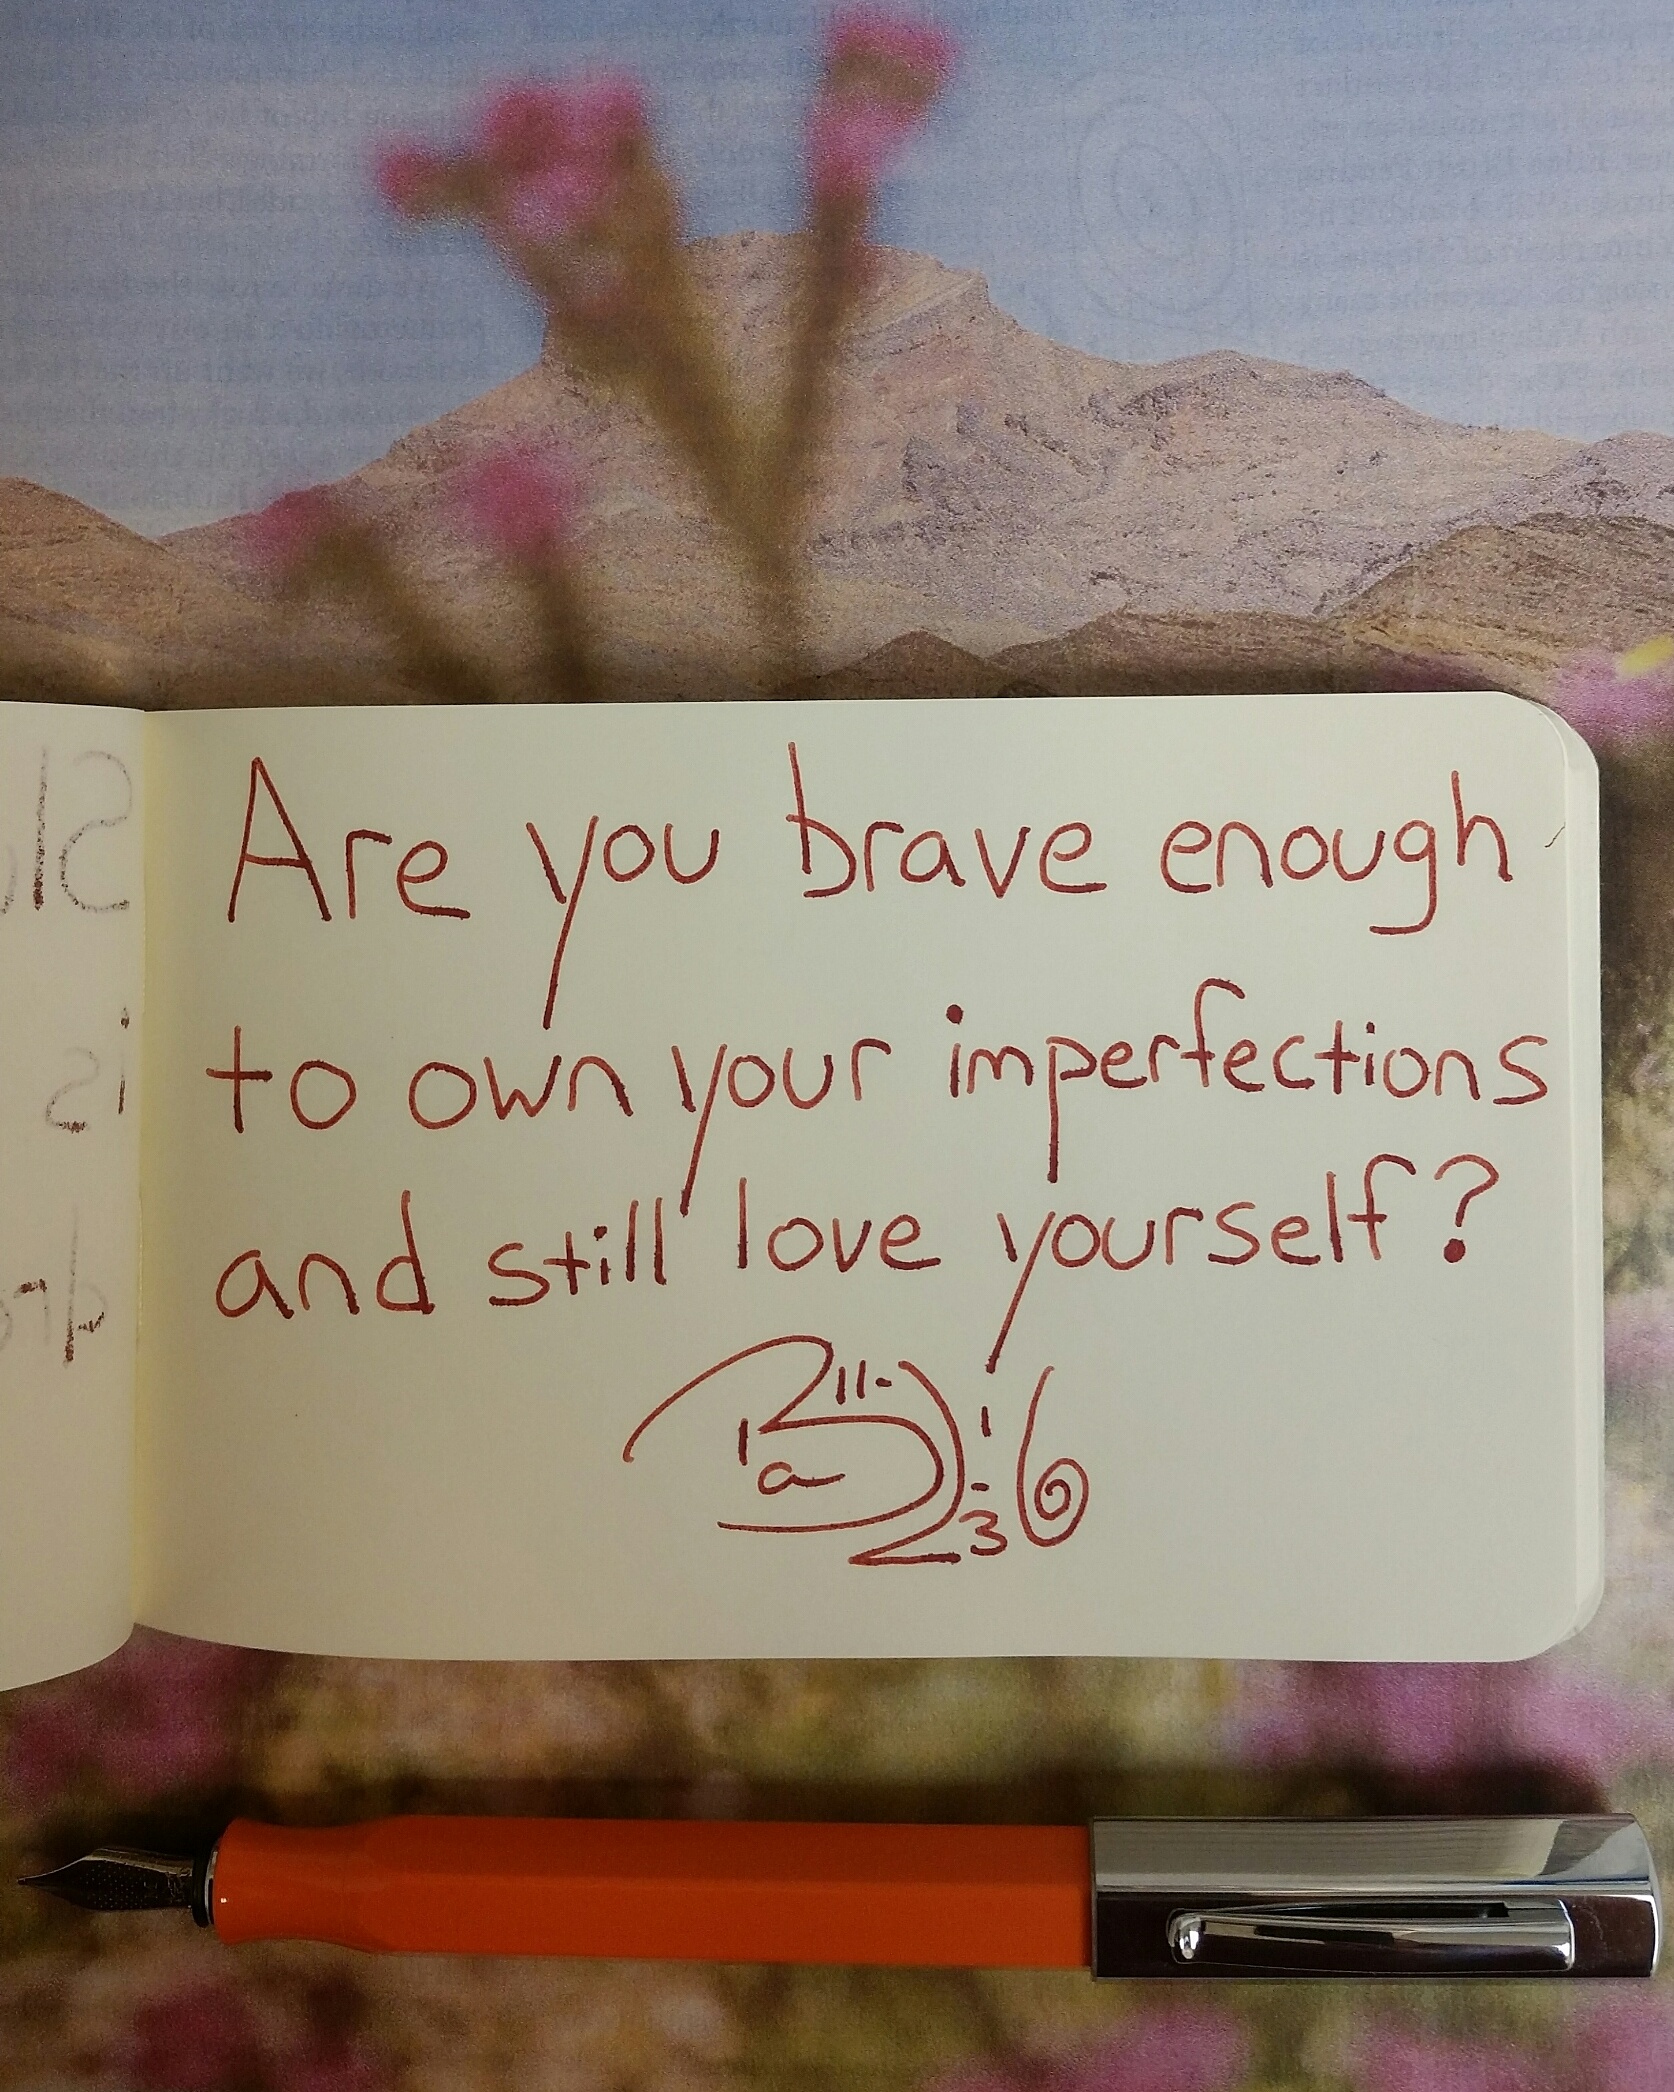 Are you brave enough
to own your imperfections
and still love yourself?